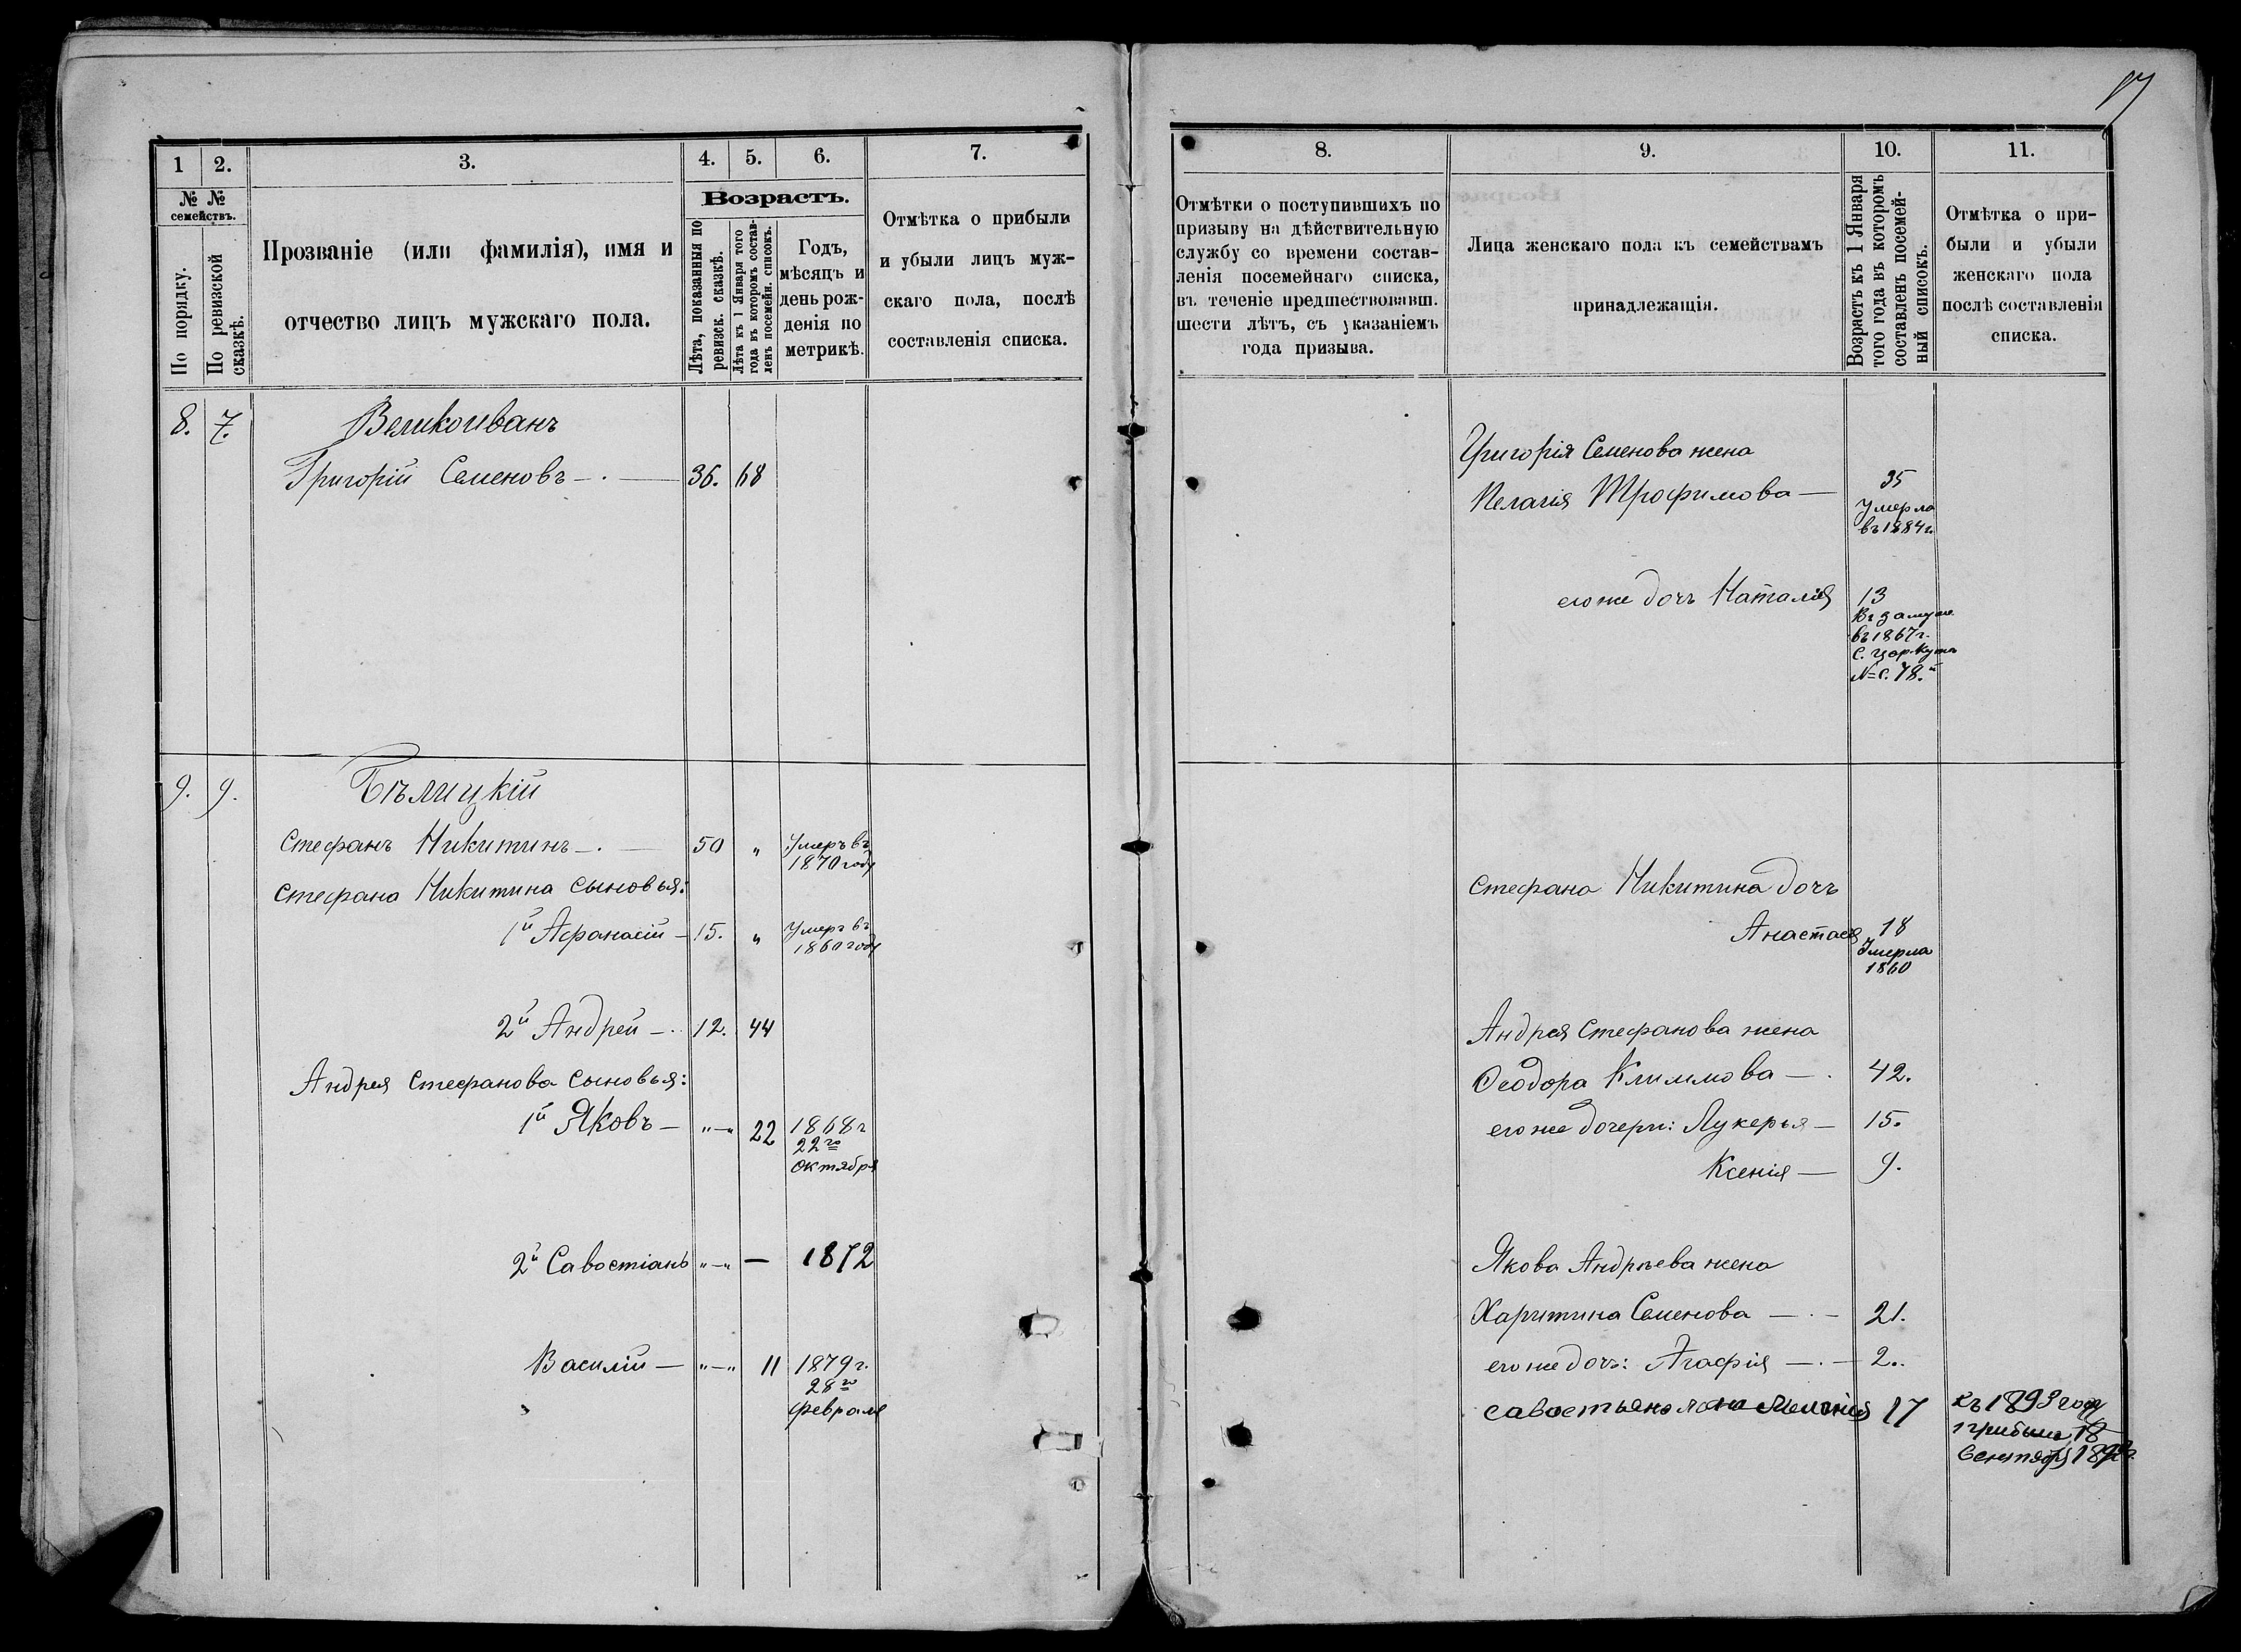 1
2.
3.
4.
5.
6.
7.
№ №
семействъ.
По порядку.
По ревизской
сказкѣ.
Прозваніе (или фамилія), имя и
отчество лицъ мужскаго пола.
Возрастъ.
Лѣта, показанныя по
ревизск. сказкѣ.
Лѣта къ 1 Января того
года въ которомъ состав-
ленъ посемейн. списокъ.
Годъ,
мѣсяцъ и
день рож-
денія по
метрикѣ.
Отмѣтка о прибыли
и убыли лицъ муж-
скаго пола, послѣ
составленія списка.
8. 7. Великоиванъ
Григорій Семеновъ — . — 36. 68
9. 9. Бѣлицкій
Стефанъ Никитинъ — . — 50 „ Умеръ въ
1870 году
Стефана Никитина сыновья:
1й Афанасій — 15. „ Умеръ въ
1860 году
2й Андрей — . 12. 44
Андрея Стефанова сыновья:
1й Яковъ — „—„ 22 1868 г
22го
Октября
2й Савостіанъ „—„ — 1872
Василій — „—„ 11 1879 г.
28го
февраля
8.
9.
10.
11.
Отмѣтки о поступившихъ по
призыву на дѣйствительную
службу со времени состав-
ленія посемейнаго списка,
въ теченіе предшествовавш.
шести лѣтъ, съ указаніемъ
года призыва.
Лица женскаго пола къ семействамъ
принадлежащія.
Возрастъ къ 1 Января
того года въ которомъ
составленъ посемей-
ный списокъ.
Отмѣтка о при-
были и убыли
женскаго пола
послѣ составленія
списка.
Григорія Семенова жена
Пелагія Трофимова — 35
Умерла
въ 1884 г.
его же дочь Наталія 13
въ 1867 г.
№ С. 78.
Стефана Никитина дочь
Анастасія 18
Умерла
1860
Андрея Стефанова жена
Феодора Климмова — . 42.
его же дочери: Лукерья — 15.
Ксенія — 9.
Якова Андрѣева жена
Харитина Семенова — . — 21.
его же дочь: Агафія — . — 2.
17
къ 1893 году
прибыла 18
Сентября